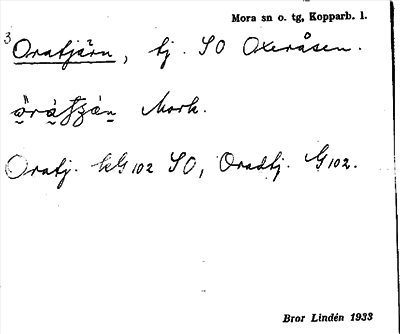 Mora sn o. tg, Kopparb. l.
3 Oratjärn, tj. SO Oxeråsen.
Mork.
Oratj. kG102 SO, Oradtj. G102.
Bror Lindén 1933